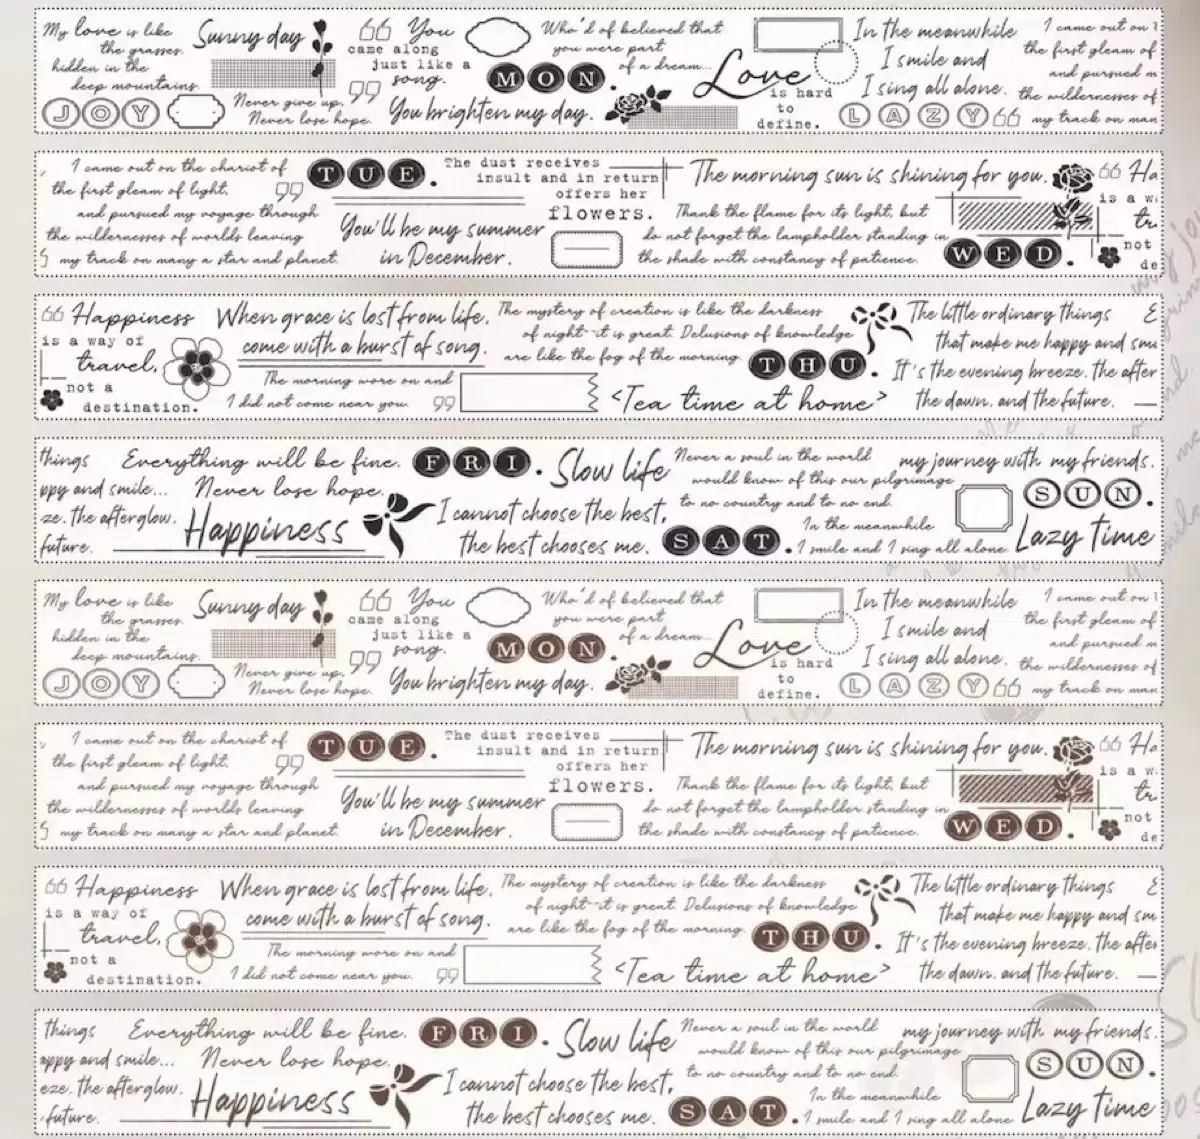 My love is like
the grasses
hidden in the
deep mountains.
Sunny day
JOY
Never give up.
Never lose hope.
You
came along
just like a
song.
MON.
You brighten my day.
Who'd of believed that
you were part
of a dream...
Love
is hard
to
define.
In the meanwhile
I smile and
I sing all alone.
LAZY
I came out on
the first gleam of
and pursued m
the wildernesses of
my track on man
I came out on the chariot of
the first gleam of light,
and pursued my voyage through
the wildernesses of worlds leaving
my track on many a star and planet.
TUE.
You'll be my summer
in December.
The dust receives
insult and in return
offers her
flowers.
The morning sun is shining for you.
Thank the flame for its light, but
do not forget the lampholder standing in
the shade with constancy of patience.
WED.
Ha
is a w
tr
not
de
Happiness
is a way of
travel,
not a
destination.
When grace is lost from life,
come with a burst of song.
The morning wore on and
I did not come near you.
The mystery of creation is like the darkness
of night--it is great. Delusions of knowledge
are like the fog of the morning.
THU.
<Tea time at home>
The little ordinary things
that make me happy and smi
It's the evening breeze, the after
the dawn, and the future.
E
things
ppy and smile...
ze, the afterglow,
future.
Everything will be fine.
Never lose hope.
Happiness
FRI.
Slow life
I cannot choose the best,
the best chooses me.
SAT.
Never a soul in the world
would know of this our pilgrimage
to no country and to no end.
In the meanwhile
I smile and I sing all alone
my journey with my friends.
SUN.
Lazy time
My love is like
the grasses
hidden in the
deep mountains.
Sunny day
JOY
Never give up.
Never lose hope.
You
came along
just like a
song.
MON.
You brighten my day.
Who'd of believed that
you were part
of a dream...
Love
is hard
to
define.
In the meanwhile
I smile and
I sing all alone.
LAZY
I came out on
the first gleam of
and pursued m
the wildernesses of
my track on man
I came out on the chariot of
the first gleam of light,
and pursued my voyage through
the wildernesses of worlds leaving
my track on many a star and planet.
TUE.
You'll be my summer
in December.
The dust receives
insult and in return
offers her
flowers.
The morning sun is shining for you.
Thank the flame for its light, but
do not forget the lampholder standing in
the shade with constancy of patience.
WED.
Ha
is a w
tr
not
de
Happiness
is a way of
travel,
not a
destination.
When grace is lost from life,
come with a burst of song.
The morning wore on and
I did not come near you.
The mystery of creation is like the darkness
of night--it is great. Delusions of knowledge
are like the fog of the morning.
THU.
<Tea time at home>
The little ordinary things
that make me happy and smi
It's the evening breeze, the after
the dawn, and the future.
E
things
appy and smile...
eze, the afterglow,
future.
Everything will be fine.
Never lose hope.
Happiness
FRI.
Slow life
I cannot choose the best,
the best chooses me.
SAT.
Never a soul in the world
would know of this our pilgrimage
to no country and to no end.
In the meanwhile
I smile and I sing all alone
my journey with my friends.
SUN.
Lazy time